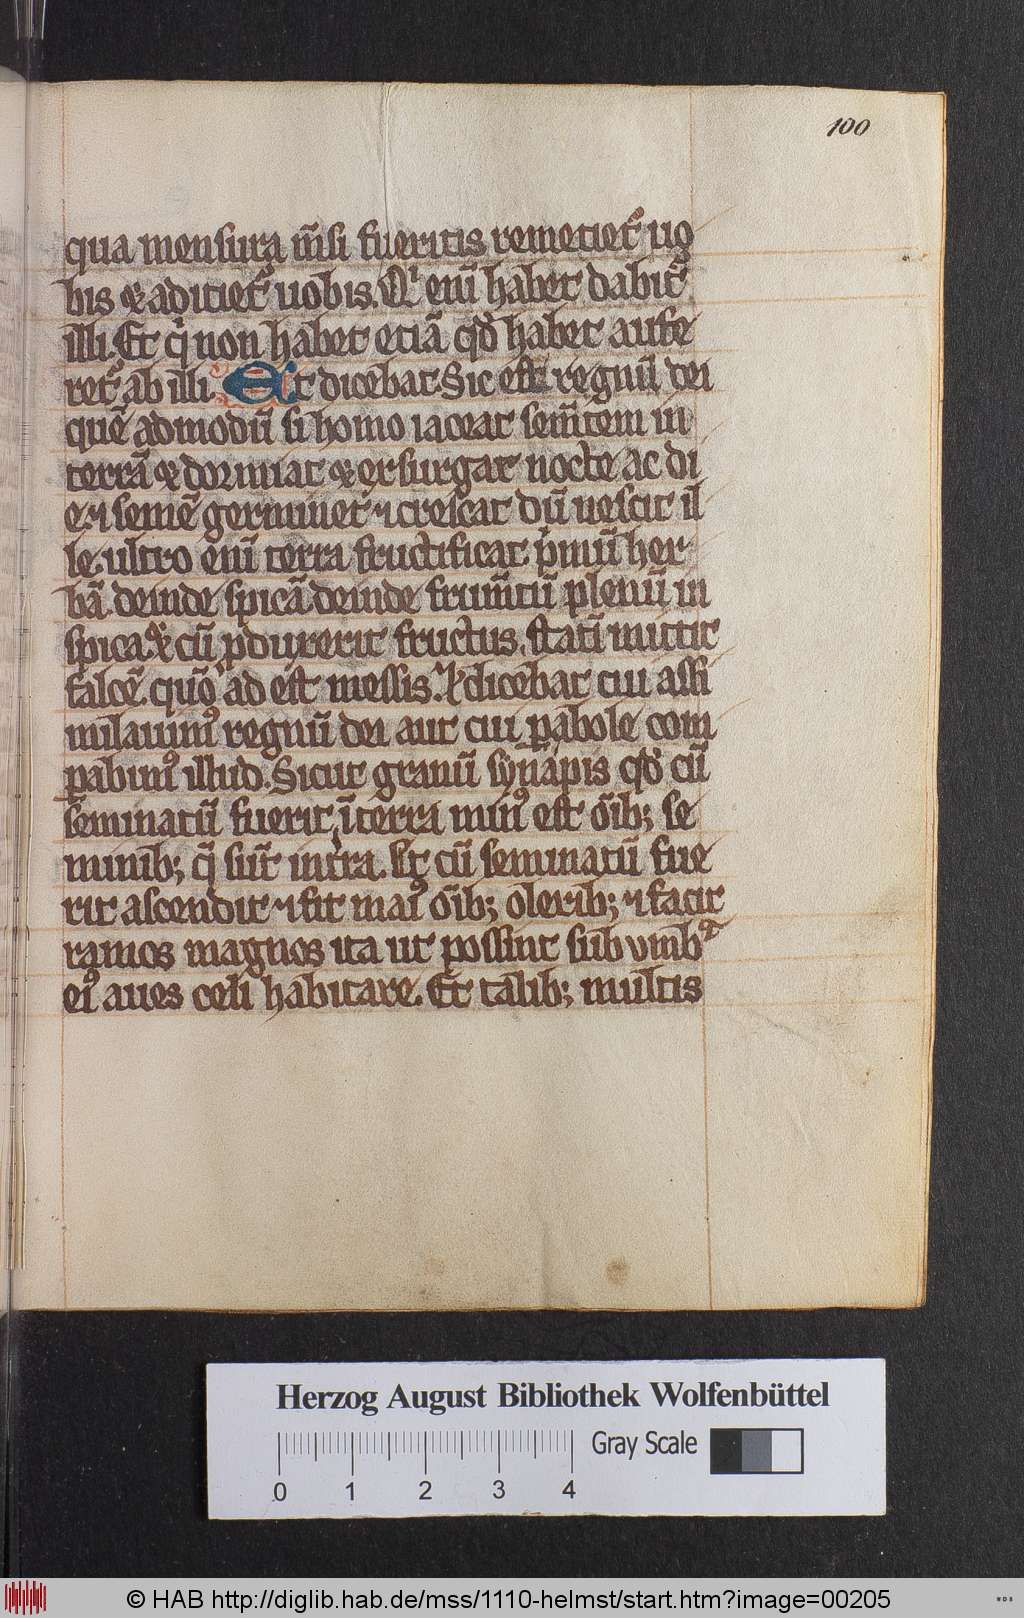 100
qua mensura m̄si fueritis remetiet᷑ uo
bis ⁊ adiciet᷑ uobis. Qͥ eni᷑ habet dabit᷑
illi. Et qͥ non habet etiā qd̄ habet aufe
ret᷑ ab illi. Et dicebat. Sic est regnū dei
quē admodū si homo iaceat sem̄tem in
terrā ⁊ dormiat ⁊ exsurgat nocte ac di
e. ⁊ semē germinet ⁊ crescat dū nescit il
le. ultro enī terra fructificat pͥmū her
bā. deinde spicā deinde frum̄tū plenū in
spica. ⁊ cū ꝓduxerit fructus. statī mittit
falcē. qm̄ ad est messis. ⁊ dicebat cui assi
milauimꝰ regnū dei aut cui ꝑabole com
ꝑabimꝰ illud. Sicut granū synapis qd̄ cū
seminatū fuerit ī terra minꝰ est oīb; se
minib; q̄ sūt in terra. Et cū seminatū fue
rit ascendit ⁊ fit maiꝰ oīb; olerib; ⁊ facit
ramos magnos ita ut possint sub vmbᵃ
eiꝰ aues celi habitare. Et talib; multis
Herzog August Bibliothek Wolfenbüttel
Gray Scale
0 1 2 3 4
© HAB http://diglib.hab.de/mss/1110-helmst/start.htm?image=00205